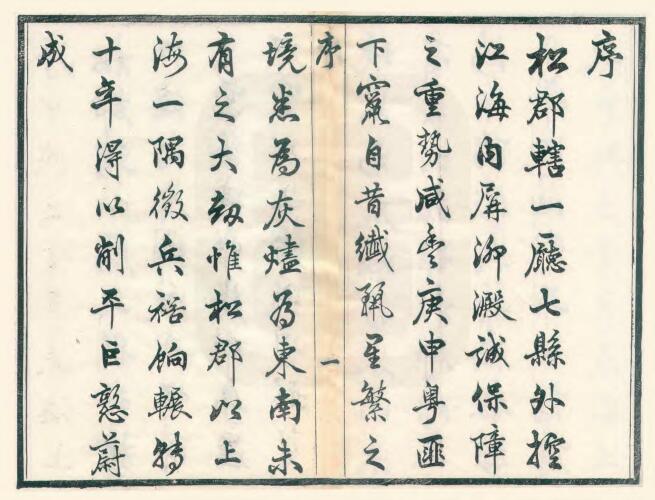 序
松郡轄一廳七縣外控
江海內屏泖澱誠保障
之重勢咸豐庚申粵匪
下竄自昔纖麗星繁之
序
一
境悉為灰燼為東南未
有之大劫惟松郡以上
海一隅徵兵裕餉輾轉
十年得以削平巨憝蔚
成